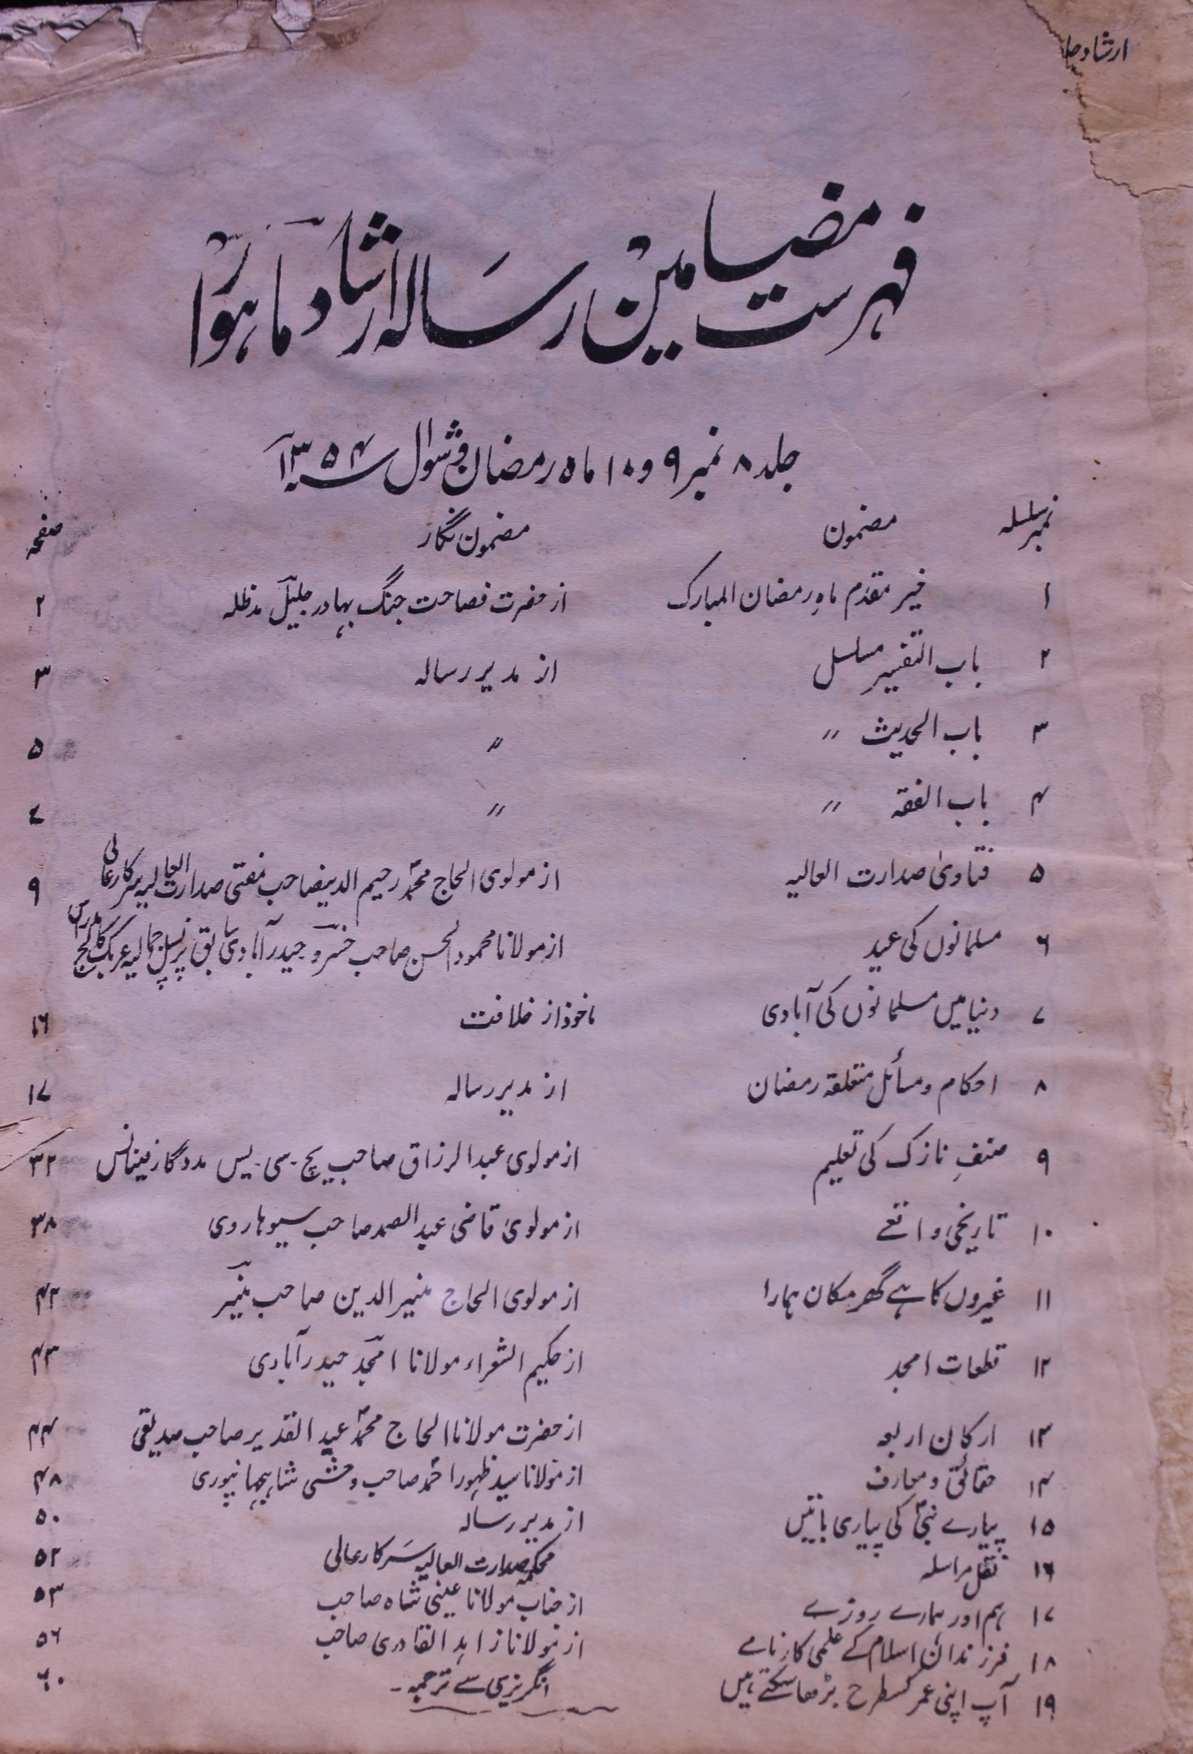 ارشاد
فہرست مضامین رسالہ ارشاد ماہوار
جلد ۸ نمبر ۹ و ۱۰ ماہ رمضان و شوال سنہ ۱۳۵۴
نمبر سلسلہ مضمون مضمون نگار صفحہ
۱ خیر مقدم ماہِ رمضان المبارک از حضرت فصاحت جنگ بہادر جلیل مدظلہ ۲
۲ باب التفسیر مسلسل از مدیر رسالہ ۳
۳ باب الحدیث 〃 〃 ۵
۴ باب الفقہ 〃 〃 ۷
۵ فتاویٰ صدارت العالیہ از مولوی الحاج محمد رحیم الدینصاحب مفتی صدارت العالیہ سرکار عالی ۹
۶ مسلمانوں کی عید از مولانا محمود الحسن صاحب خسرو حیدرآبادی سابق پرنسپل جمالیہ عربک کالج مدراس
۷ دنیا میں مسلمانوں کی آبادی ماخوذ از خلافت ۱۶
۸ احکام و مسائل متعلقہ رمضان از مدیر رسالہ ۱۷
۹ صنفِ نازک کی تعلیم از مولوی عبدالرزاق صاحب یچ۔سی۔یس مددگار فینانس ۳۲
۱۰ تاریخی واقعے از مولوی قاضی عبدالصمد صاحب سیوہاروی ۳۸
۱۱ غیروں کا ہے گھر مکان ہمارا از مولوی الحاج منیر الدین صاحب منیر ۴۲
۱۲ قطعات امجد از حکیم الشعراء مولانا امجد حیدرآبادی ۴۳
۱۳ ارکان اربعہ از حضرت مولانا الحاج محمد عبدالقدیر صاحب صدیقی ۴۴
۱۴ حقائق و معارف از مولانا سید ظہور احمد صاحب وحشی شاہجہانپوری ۴۸
۱۵ پیارے نبیؐ کی پیاری باتیں از مدیر رسالہ ۵۰
۱۶ نقل مراسلہ محکمہ صدارت العالیہ سرکار عالی ۵۲
۱۷ ہم اور ہمارے روزے از جناب مولانا عینی شاہ صاحب ۵۳
۱۸ فرزندان اسلام کے علمی کارنامے از مولانا زاہد القادری صاحب ۵۶
۱۹ آپ اپنی عمر کسطرح بڑھا سکتے ہیں انگریزی سے ترجمہ۔ ۶۰